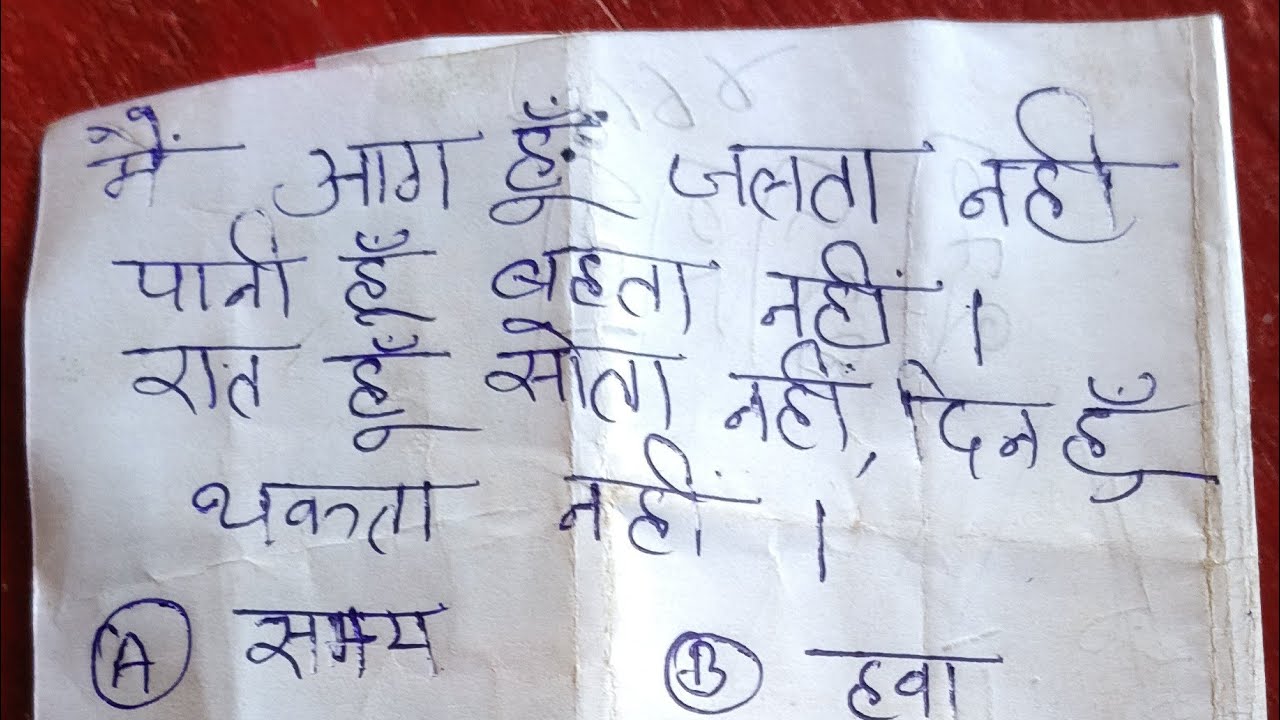 मैं आग हूँ जलता नही
पानी हूँ बहता नहीं ।
रात हूँ सोता नहीं, दिन हूँ
थकता नहीं ।
Ⓐ समय Ⓑ हवा